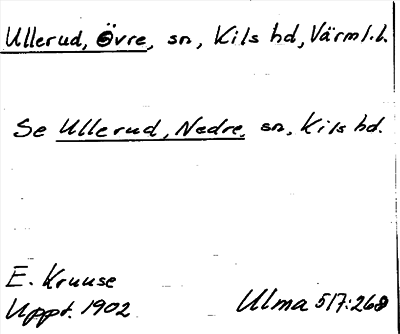 Ullerud, Övre, sn, Kils hd, Värml.l.
Se Ullerud, Nedre, sn, Kils hd.
E. Kruuse
Uppt. 1902
Ulma 517:268